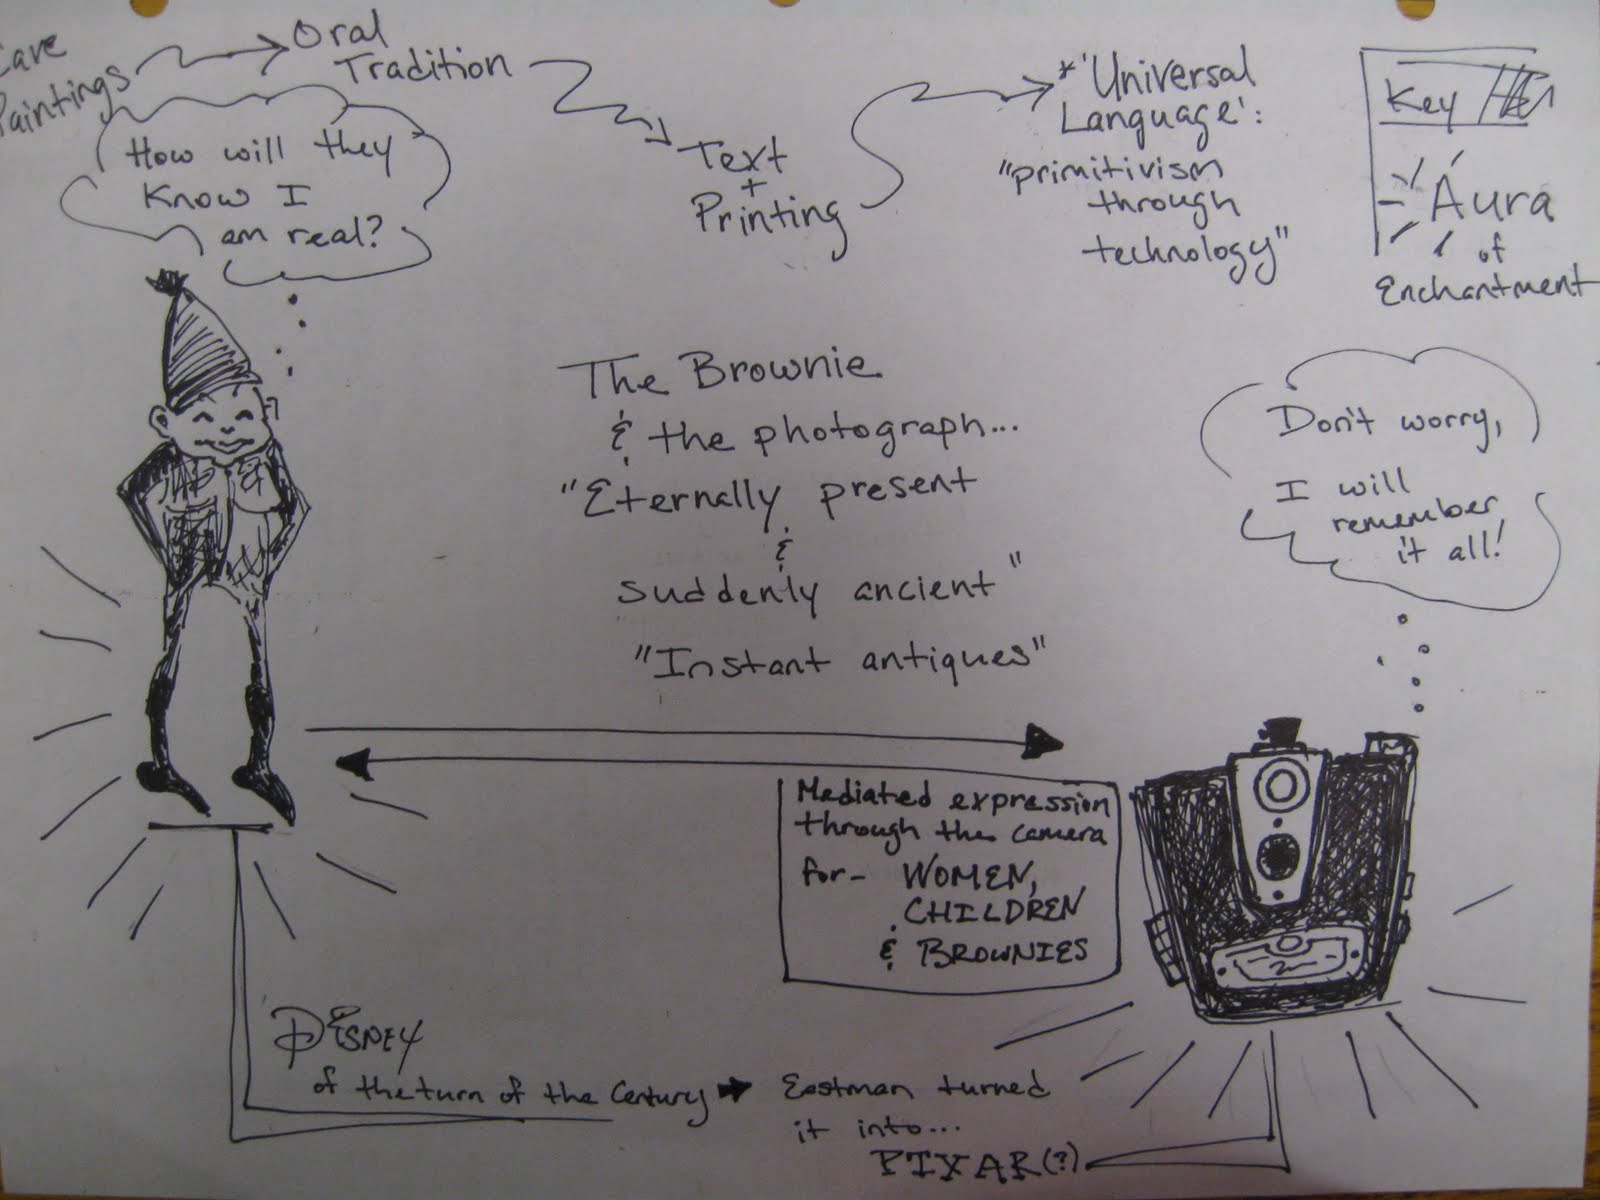 Cave
Paintings
Oral
Tradition
Text
+
Printing
*'Universal
Language':
"primitivism
through
technology"
Key
Aura
of
Enchantment
How will they
know I
am real?
The Brownie
& the photograph...
"Eternally present
&
suddenly ancient"
"Instant antiques"
Don't worry,
I will
remember
it all!
Mediated expression
through the camera
for- WOMEN,
CHILDREN
& BROWNIES
DISNEY
of the turn of the Century
Eastman turned
it into...
PIXAR(?)